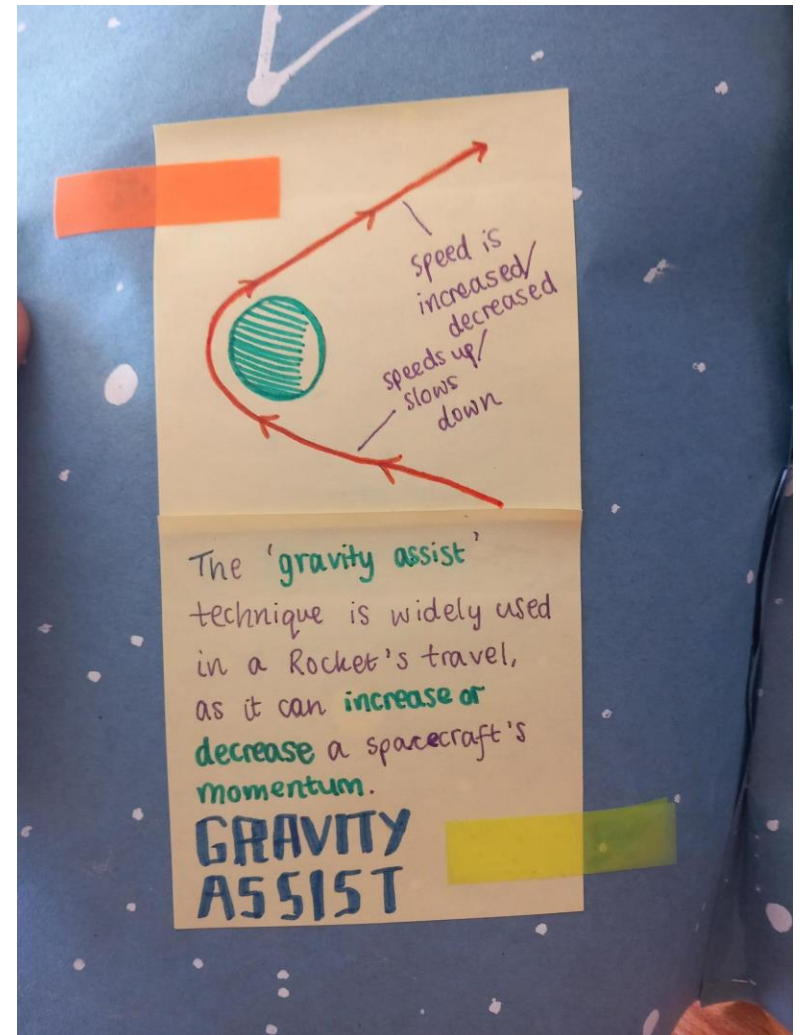 speed is
increased/
decreased
speeds up/
slows
down
The 'gravity assist'
technique is widely used
in a Rocket's travel,
as it can increase or
decrease a spacecraft's
momentum.
GRAVITY
ASSIST